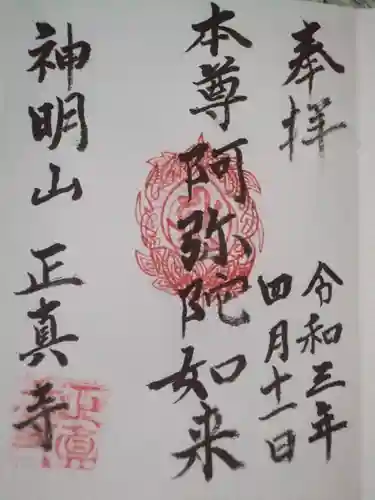 奉拝
令和三年
四月十一日
本尊阿弥陀如来
神明山 正真寺